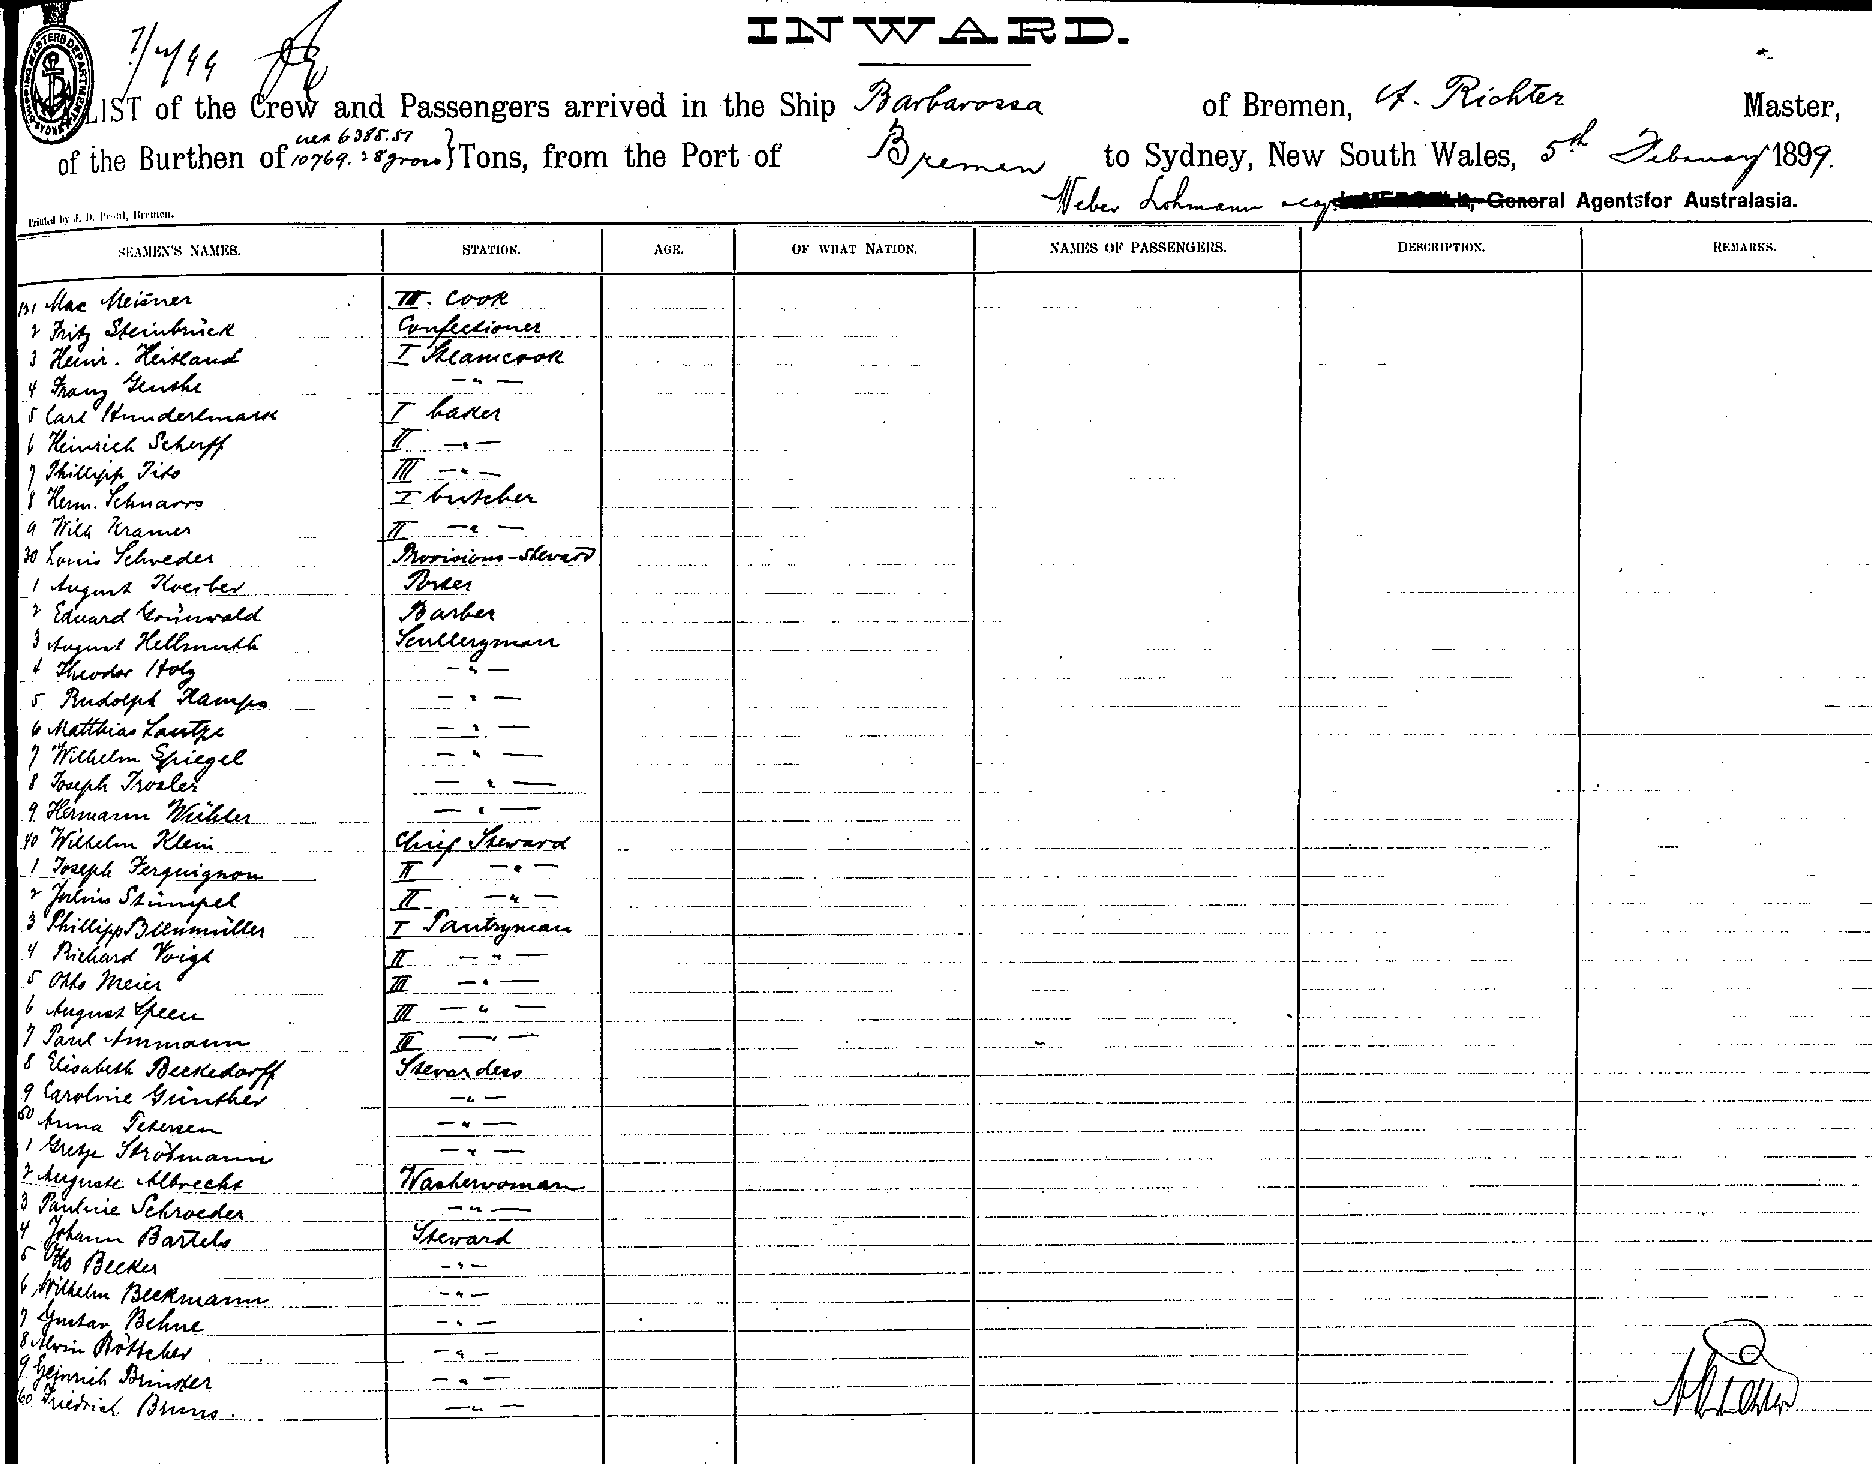 INWARD.
7/2/99
LIST of the Crew and Passengers arrived in the Ship Barbarossa of Bremen, A. Richter Master,
of the Burthen of 6385.51 10769.28 gross } Tons, from the Port of Bremen to Sydney, New South Wales, 5th February 1899.
Weber Lohmann General Agents for Australasia.
Printed by J. D. Bremen.
SEAMEN'S NAMES. STATION. AGE. OF WHAT NATION. NAMES OF PASSENGERS. DESCRIPTION. REMARKS.
Max Meisner III. Cook
2 Fritz Steinbrück Confectioner
3 Heinr. Heitland I Steamcook
4 Franz —"—
5 Carl Hundertmark I baker
6 Heinrich Scherff II —"—
7 Phillipp Tito III —"—
8 Herm. Schnaars I butcher
9 Wilh Kramer II —"—
30 Louis Schroeder Provisions-Steward
1 August Koerber Porter
2 Eduard Grünwald Barber
3 August Hellmuth Sculleryman
4 Theodor Holz —"—
5 Rudolph Kamps —"—
6 Matthias —"—
7 Wilhelm Spiegel —"—
8 Joseph —"—
9 Hermann Wühler —"—
40 Wilhelm Klein Chief Steward
1 Joseph Ferquignon II —"—
2 Julius Stümpel II —"—
3 Phillipp I Pantryman
4 Richard Voigt II —"—
5 Otto Meier III —"—
6 August Speen III —"—
7 Paul Ammann III —"—
8 Elisabeth Beckedorff Stewardess
9 Caroline Günther —"—
50 Anna Petersen —"—
1 Gretje Ströhmann —"—
2 Auguste Albrecht Washerwoman
3 Pauline Schroeder —"—
4 Johann Bartels Steward
5 Otto Becker —"—
6 Wilhelm Beckmann —"—
7 Gustav Behne —"—
8 Alwin Böttcher —"—
9 Heinrich Brinker —"—
60 Friedrich Bruns. —"—
A Richter